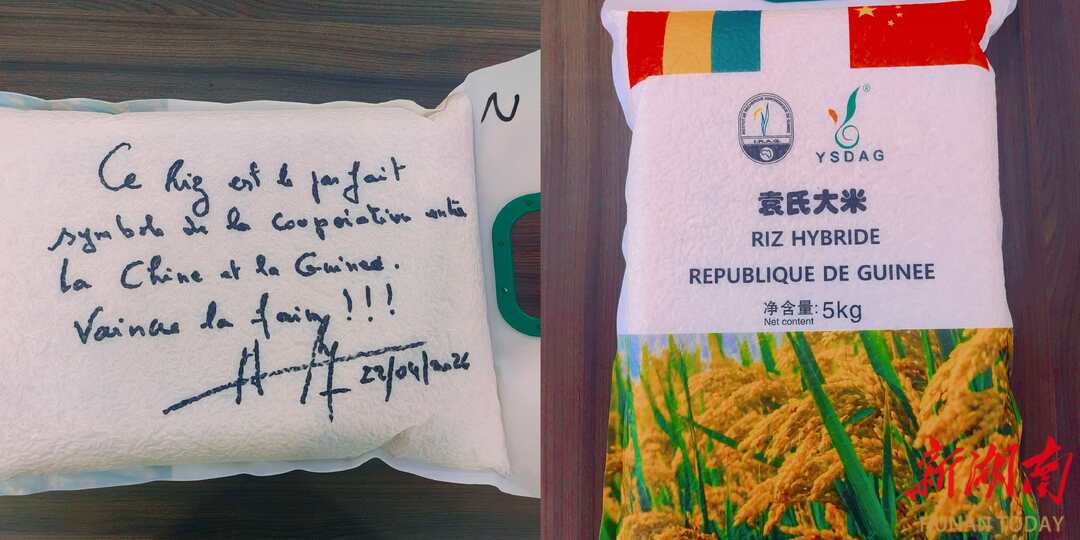 N
Ce Riz est le parfait
symbole de la coopération entre
la Chine et la Guinée.
Vaincre la faim !!!
22/04/2026
I.R.A.G
YSDAG
®
袁氏大米
RIZ HYBRIDE
REPUBLIQUE DE GUINEE
净含量: 5kg
Net content
新湖南
HUNAN TODAY